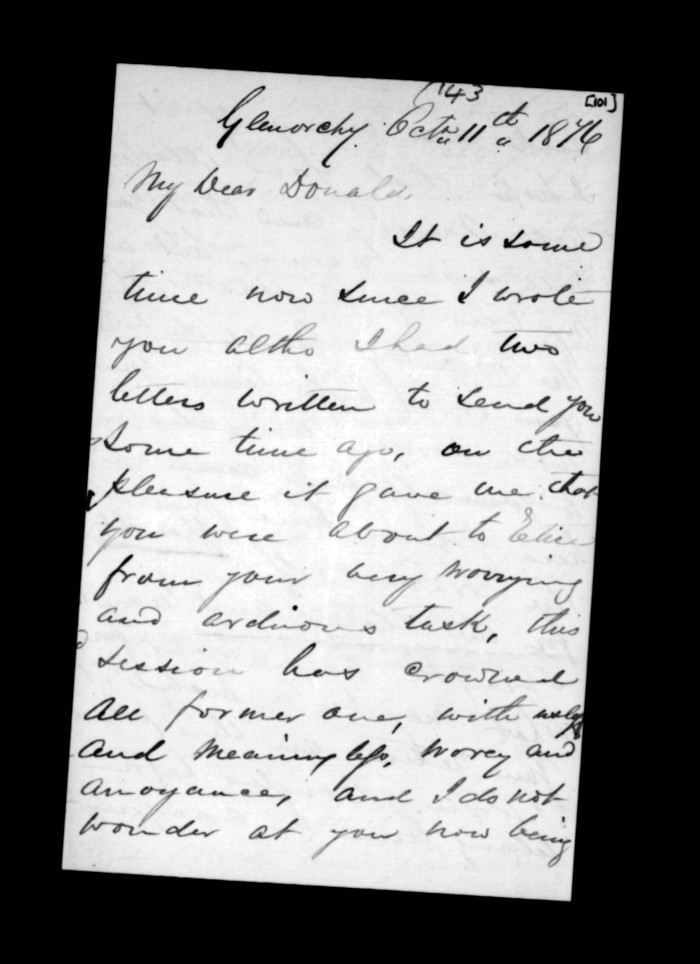 143
[101]
Glenorchy. Octr 11th 1876
My Dear Donald.
It is some
time now since I wrote
you altho I had two
letters written to send you
some time ago, on the
pleasure it gave me that
you were about to Retire
from your very worrying
and arduous task, this
session has crowned
all former one, with
and meaningless, worey and
anoyance, and I do not
wonder at you now being